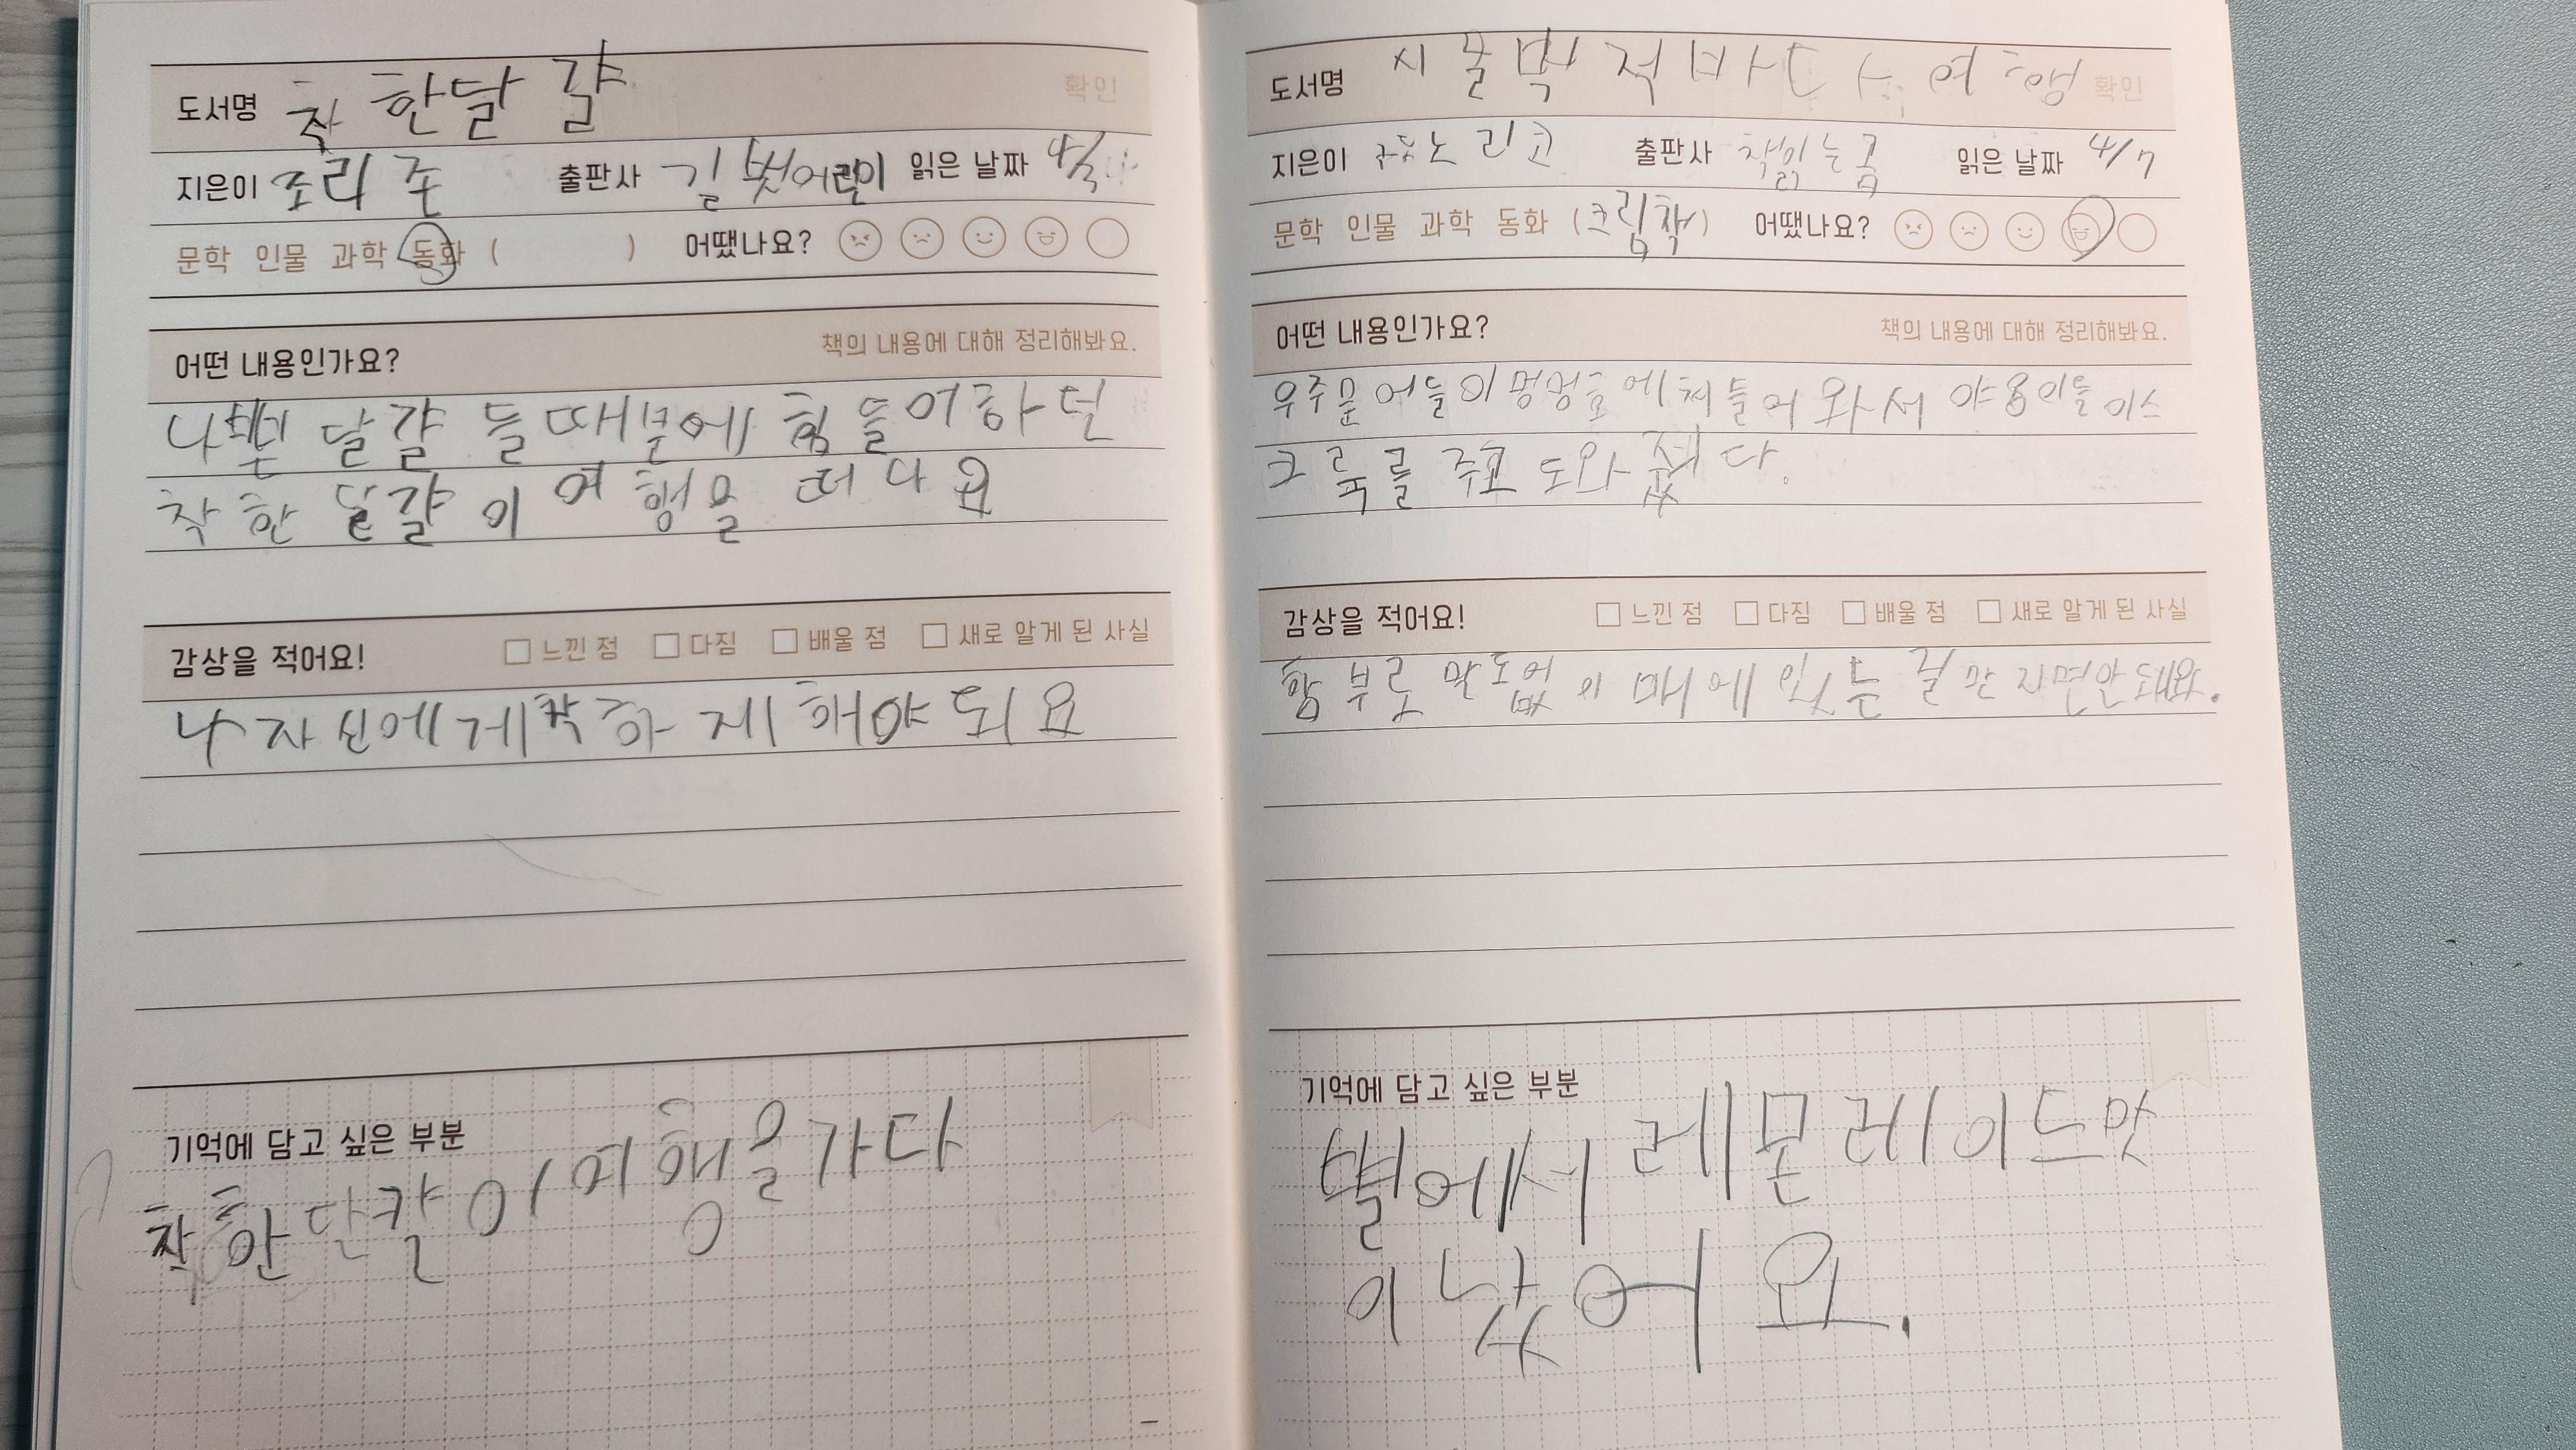 도서명 착한달걀
확인
지은이 조리 존 출판사 길벗어린이 읽은 날짜 4/
문학 인물 과학 동화 ( ) 어땠나요?
어떤 내용인가요? 책의 내용에 대해 정리해봐요.
나쁜 달걀들때문에 힘들어하던
착한 달걀이 여행을 떠나요
감상을 적어요! 느낀 점 다짐 배울 점 새로 알게 된 사실
나 자신에게 착하게 해야 되요
기억에 담고 싶은 부분
착한 단걀이 여행을 가다
도서명 시끌벅적 여행
확인
지은이 노리코 출판사 책읽는곰 읽은 날짜 4/7
문학 인물 과학 동화 (크림착) 어땠나요?
어떤 내용인가요? 책의 내용에 대해 정리해봐요.
우주문어들이 멍멍호에 쳐들어와서 야옹이들이 스
크류를 주고 도와줬다.
감상을 적어요! 느낀 점 다짐 배울 점 새로 알게 된 사실
함부로 말도없이 에 있는 걸 만지면안돼요.
기억에 담고 싶은 부분
별에서 레몬레이드맛
이 났어요.